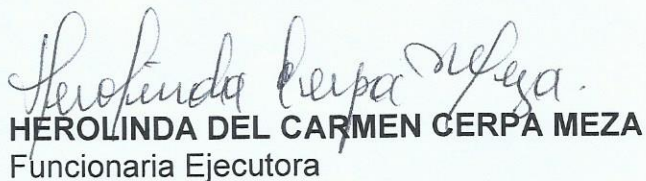 Herolinda Cerpa Meza.
HEROLINDA DEL CARMEN CERPA MEZA
Funcionaria Ejecutora